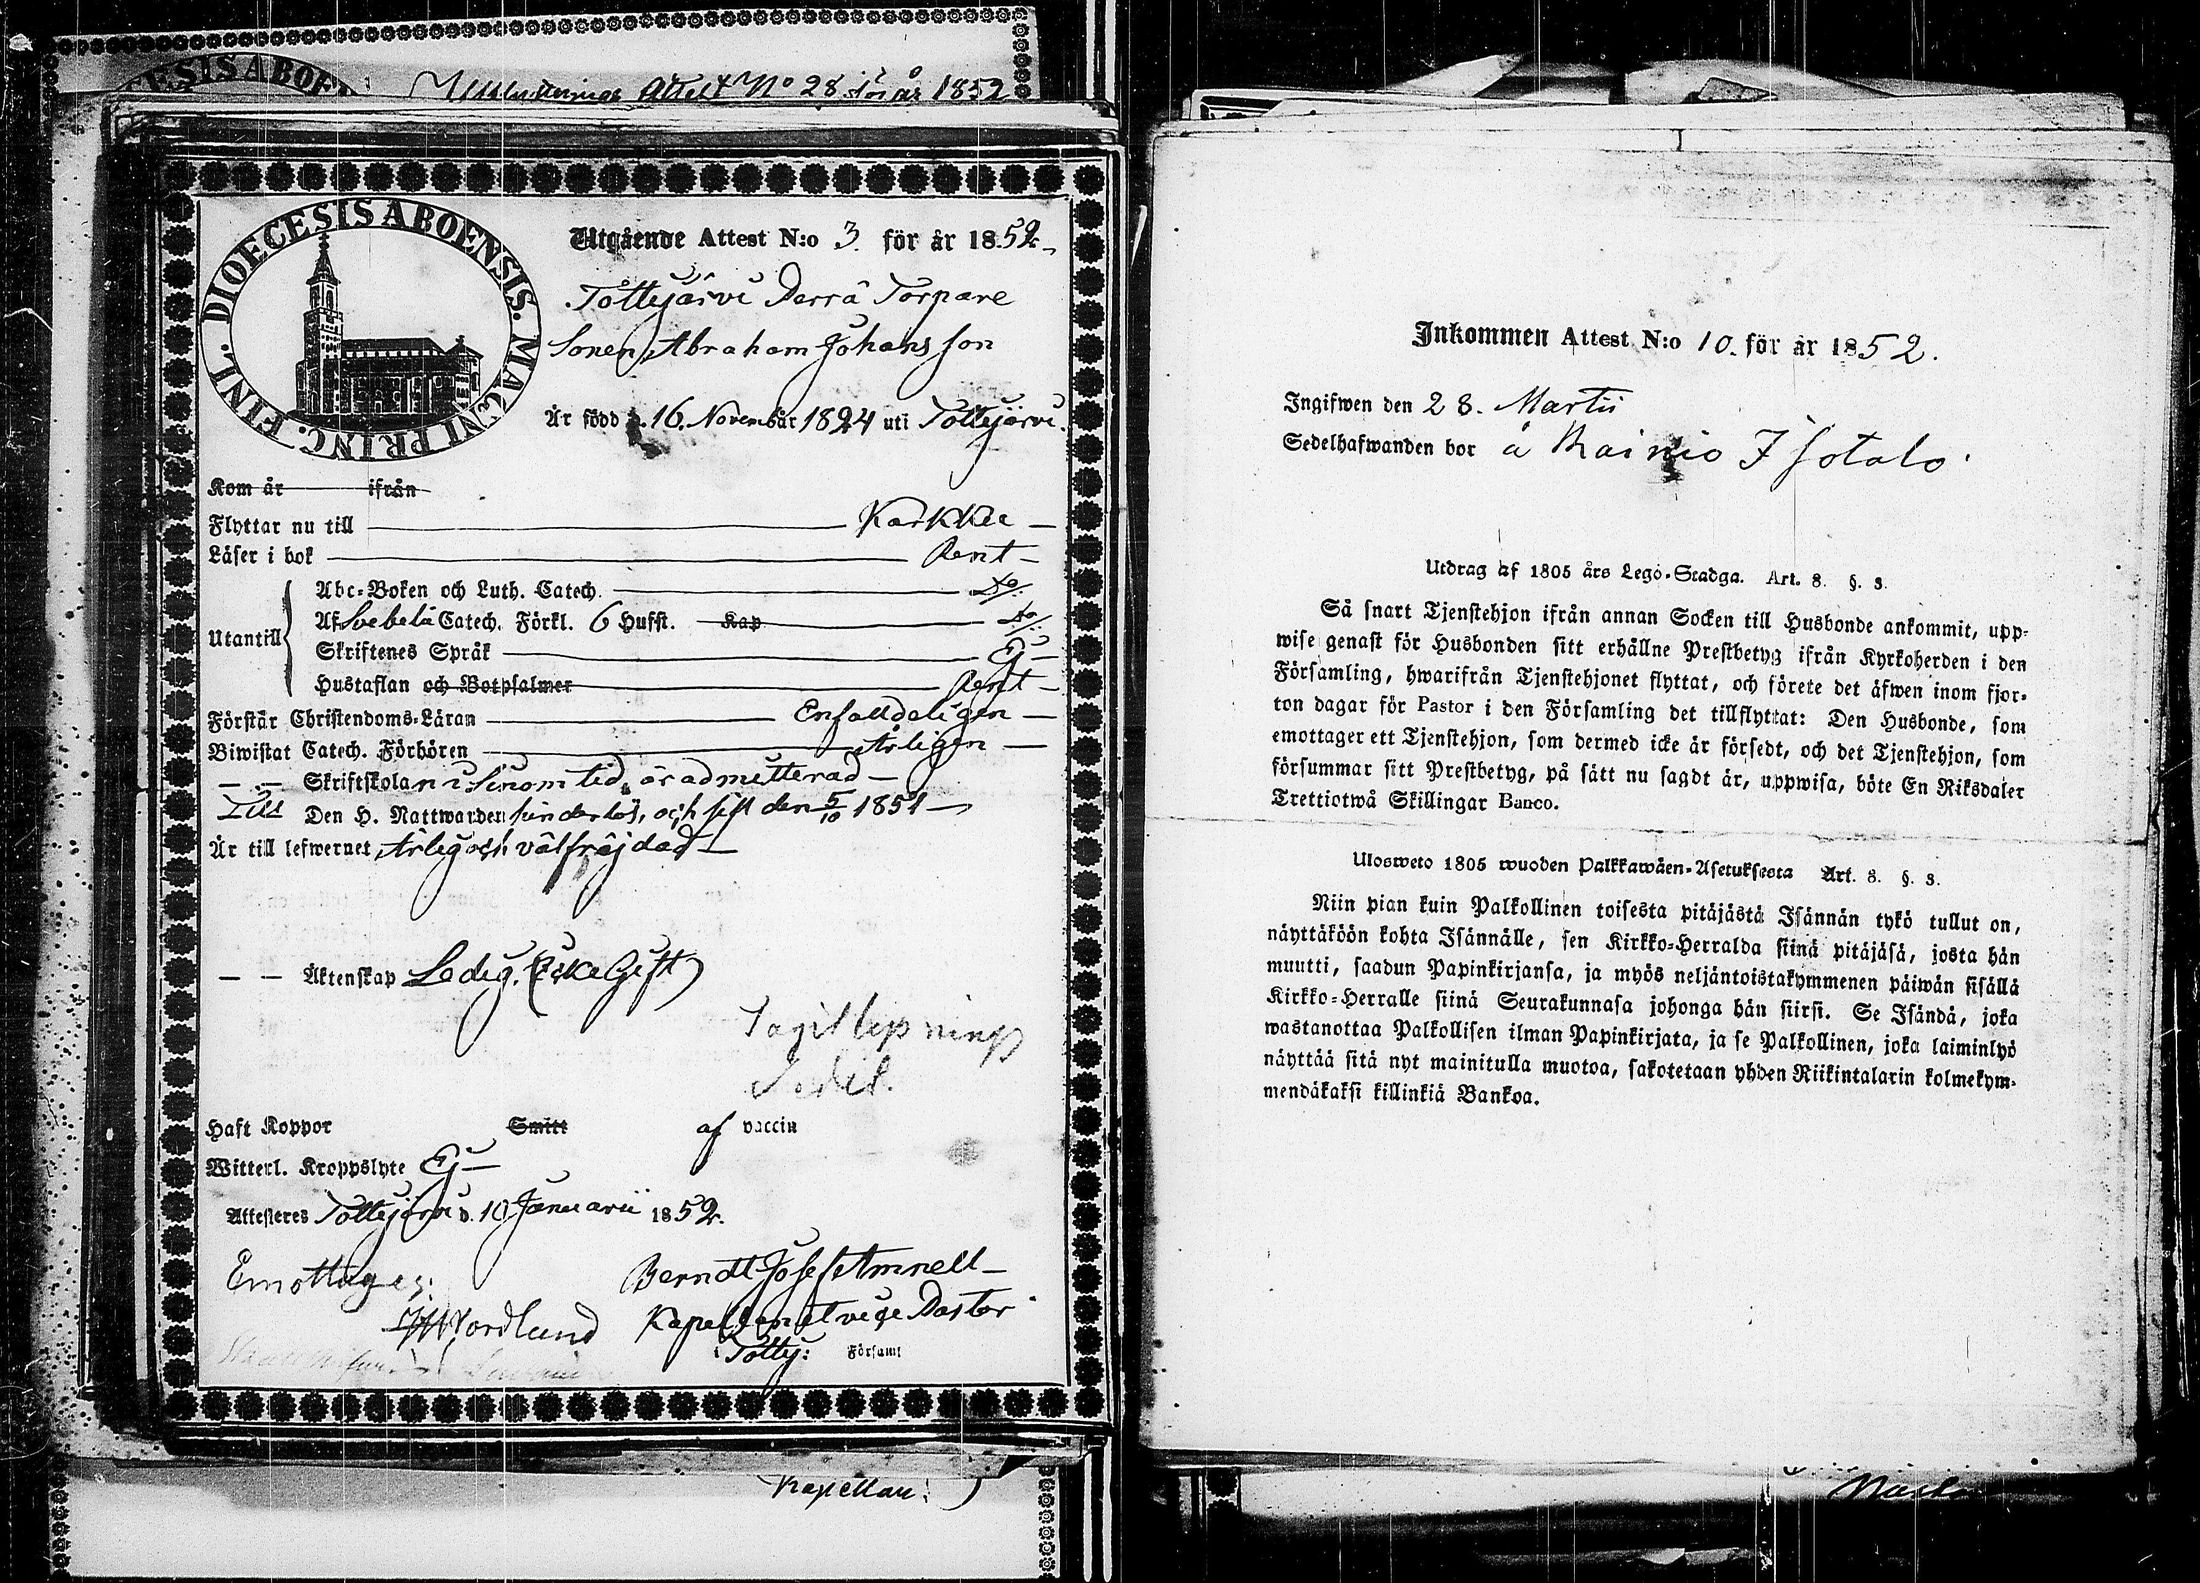 Attest No 28 för år 1852
DIOECESIS ABOENSIS. MAGNI PRINC. FINL.
Utgående Attest N:o 3. för år 1852
Tottijärvi Torpare
Sonen Abraham Johansson
Är född d. 16. November 1824 uti Tottijärvi
Kom år ifrån
Flyttar nu till Karkku
Läser i bok Rent
Utantill
Abc-Boken och Luth. Catech. do.
Af Svebelii Catech. Förkl. 6 Hufst. Kap do.
Skriftenes Språk Ej
Hustaflan och Botpsalmer Rent
Förstår Christendoms-Läran Enfalldeligen
Biwistat Catech. Förhören Årligen
— — Skriftskolan i sinom tid, är admitterad
Till Den H. Nattwarden hinderlös, och sist den 5/10 1851
Är till lefwernet Ärlig och välfräjdad
— — Äktenskap Ledig. (Icke Gift)
Sedel.
Haft Koppor Smitt af vaccin
Witterl. Kroppslyte Ej
Attesteres Tottijärvi d. 10 Januarii 1852.
Emottages: Berndt Josef Amnell
Nordlund Kapellan
i Tottij: Församl
Kapellan.
Inkommen Attest N:o 10. för år 1852.
Ingifwen den 28. Martii
Sedelhafwanden bor å Rainio Isotalo.
Utdrag af 1805 års Lego-Stadga. Art. 8. §. 3.
Så snart Tjenstehjon ifrån annan Socken till Husbonde ankommit, upp-
wise genast för Husbonden sitt erhållne Prestbetyg ifrån Kyrkoherden i den
Församling, hwarifrån Tjenstehjonet flyttat, och förete det äfwen inom fjor-
ton dagar för Pastor i den Församling det tillflyttat: Den Husbonde, som
emottager ett Tjenstehjon, som dermed icke är försedt, och det Tjenstehjon, som
försummar sitt Prestbetyg, på sätt nu sagdt är, uppwisa, böte En Riksdaler
Trettiotwå Skillingar Banco.
Ulosweto 1805 wuoden Palkkawäen-Asetuksesta Art. 8. §. 3.
Niin pian kuin Palkollinen toisesta pitäjästä Isännän tykö tullut on,
näyttäköön kohta Isännälle, sen Kirkko-Herralda siinä pitäjäsä, josta hän
muutti, saadun Papinkirjansa, ja myös neljäntoistakymmenen päiwän sisällä
Kirkko-Herralle siinä Seurakunnasa johonga hän siirsi. Se Isändä, joka
wastanottaa Palkollisen ilman Papinkirjata, ja se Palkollinen, joka laiminlyö
näyttää sitä nyt mainitulla muotoa, sakotetaan yhden Riikintalarin kolmekym-
mendäkaksi killinkiä Bankoa.